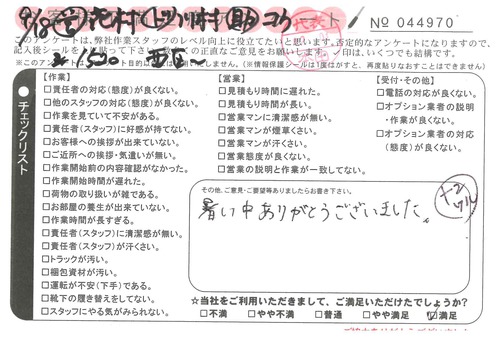 No 044970
このアンケートは、弊社作業スタッフのレベル向上に役立てたいと思います。否定的なアンケートになりますので、
記入後シールを
正直なご意見をお願いします。✓印は、いくつでも結構です。
(※情報保護シールは1度はがすと、再度貼りなおすことはできません)
チェックリスト
【作業】
□責任者の対応(態度)が良くない。
□他のスタッフの対応(態度)が良くない。
□作業を見ていて不安がある。
□責任者(スタッフ)に好感が持てない。
□お客様への挨拶が出来ていない。
□ご近所への挨拶・気遣いが無い。
□作業開始前の内容確認がなかった。
□作業開始時間が遅れた。
□荷物の取り扱いが雑である。
□お部屋の養生が出来ていない。
□作業時間が長すぎる。
□責任者(スタッフ)に清潔感が無い。
□責任者(スタッフ)が汗くさい。
□トラックが汚い。
□梱包資材が汚い。
□運転が不安(下手)である。
□靴下の履き替えをしてない。
□スタッフにやる気がみられない。
【営業】
□見積もり時間に遅れた。
□見積もり時間が長い。
□営業マンに清潔感が無い。
□営業マンが煙草くさい。
□営業マンが汗くさい。
□営業態度が良くない。
□営業の説明と作業が一致してない。
【受付・その他】
□電話の対応が良くない。
□オプション業者の説明
・作業が良くない。
□オプション業者の対応
(態度)が良くない。
その他、ご意見・ご要望等ありましたらお書き下さい。
暑い中ありがとうございました。
☆当社をご利用いただきまして、ご満足いただけたでしょうか?
□不満 □やや不満 □普通 □やや満足 ☑満足